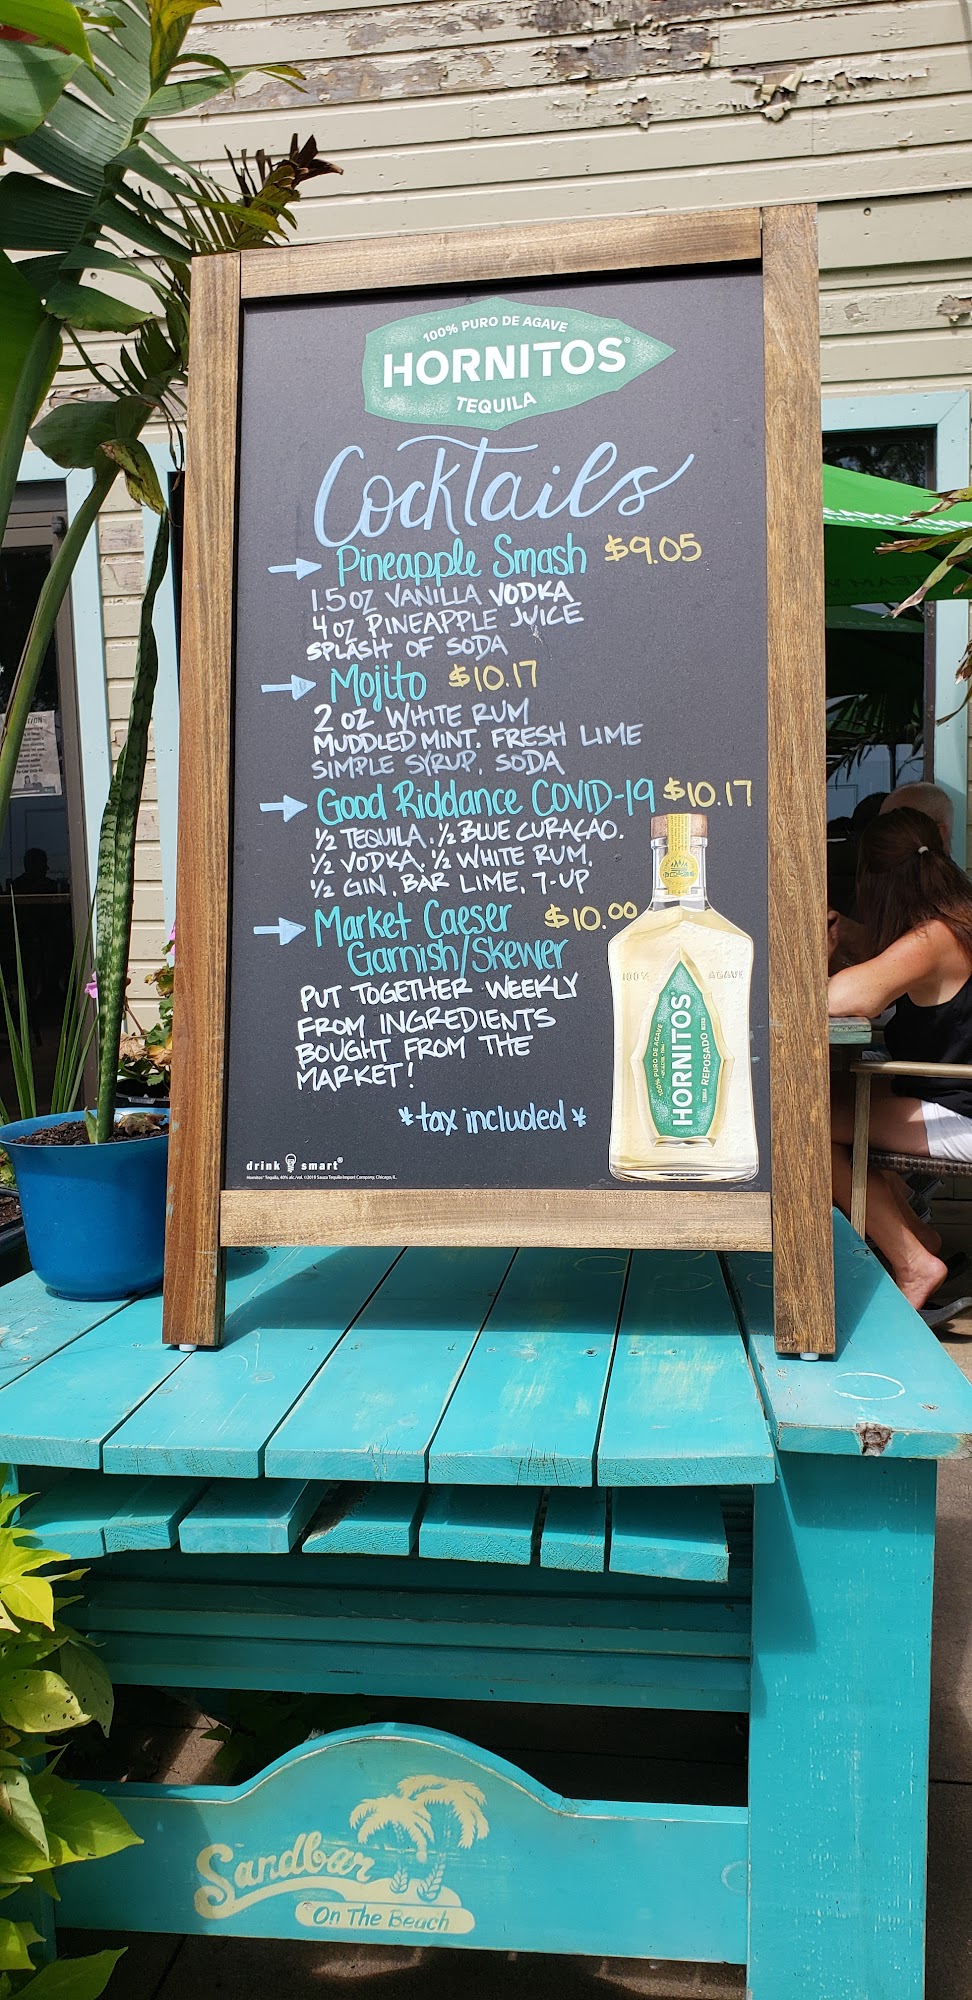 100% PURO DE AGAVE
HORNITOS®
TEQUILA
Cocktails
Pineapple Smash $9.05
1.5 OZ VANILLA VODKA
4 OZ PINEAPPLE JUICE
SPLASH OF SODA
Mojito $10.17
2 OZ WHITE RUM
MUDDLED MINT. FRESH LIME
SIMPLE SYRUP. SODA
Good Riddance COVID-19 $10.17
1/2 TEQUILA. 1/2 BLUE CURAÇAO.
1/2 VODKA. 1/2 WHITE RUM.
1/2 GIN. BAR LIME. 7-UP
Market Caeser $10.00
Garnish/Skewer
PUT TOGETHER WEEKLY
FROM INGREDIENTS
BOUGHT FROM THE
MARKET!
*tax included*
100% AGAVE
100% PURO DE AGAVE
HORNITOS®
REPOSADO
drink smart®
Hornitos® Tequila, 40% alc./vol. ©2019 Sauza Tequila Import Company, Chicago, IL.
Sandbar
On The Beach